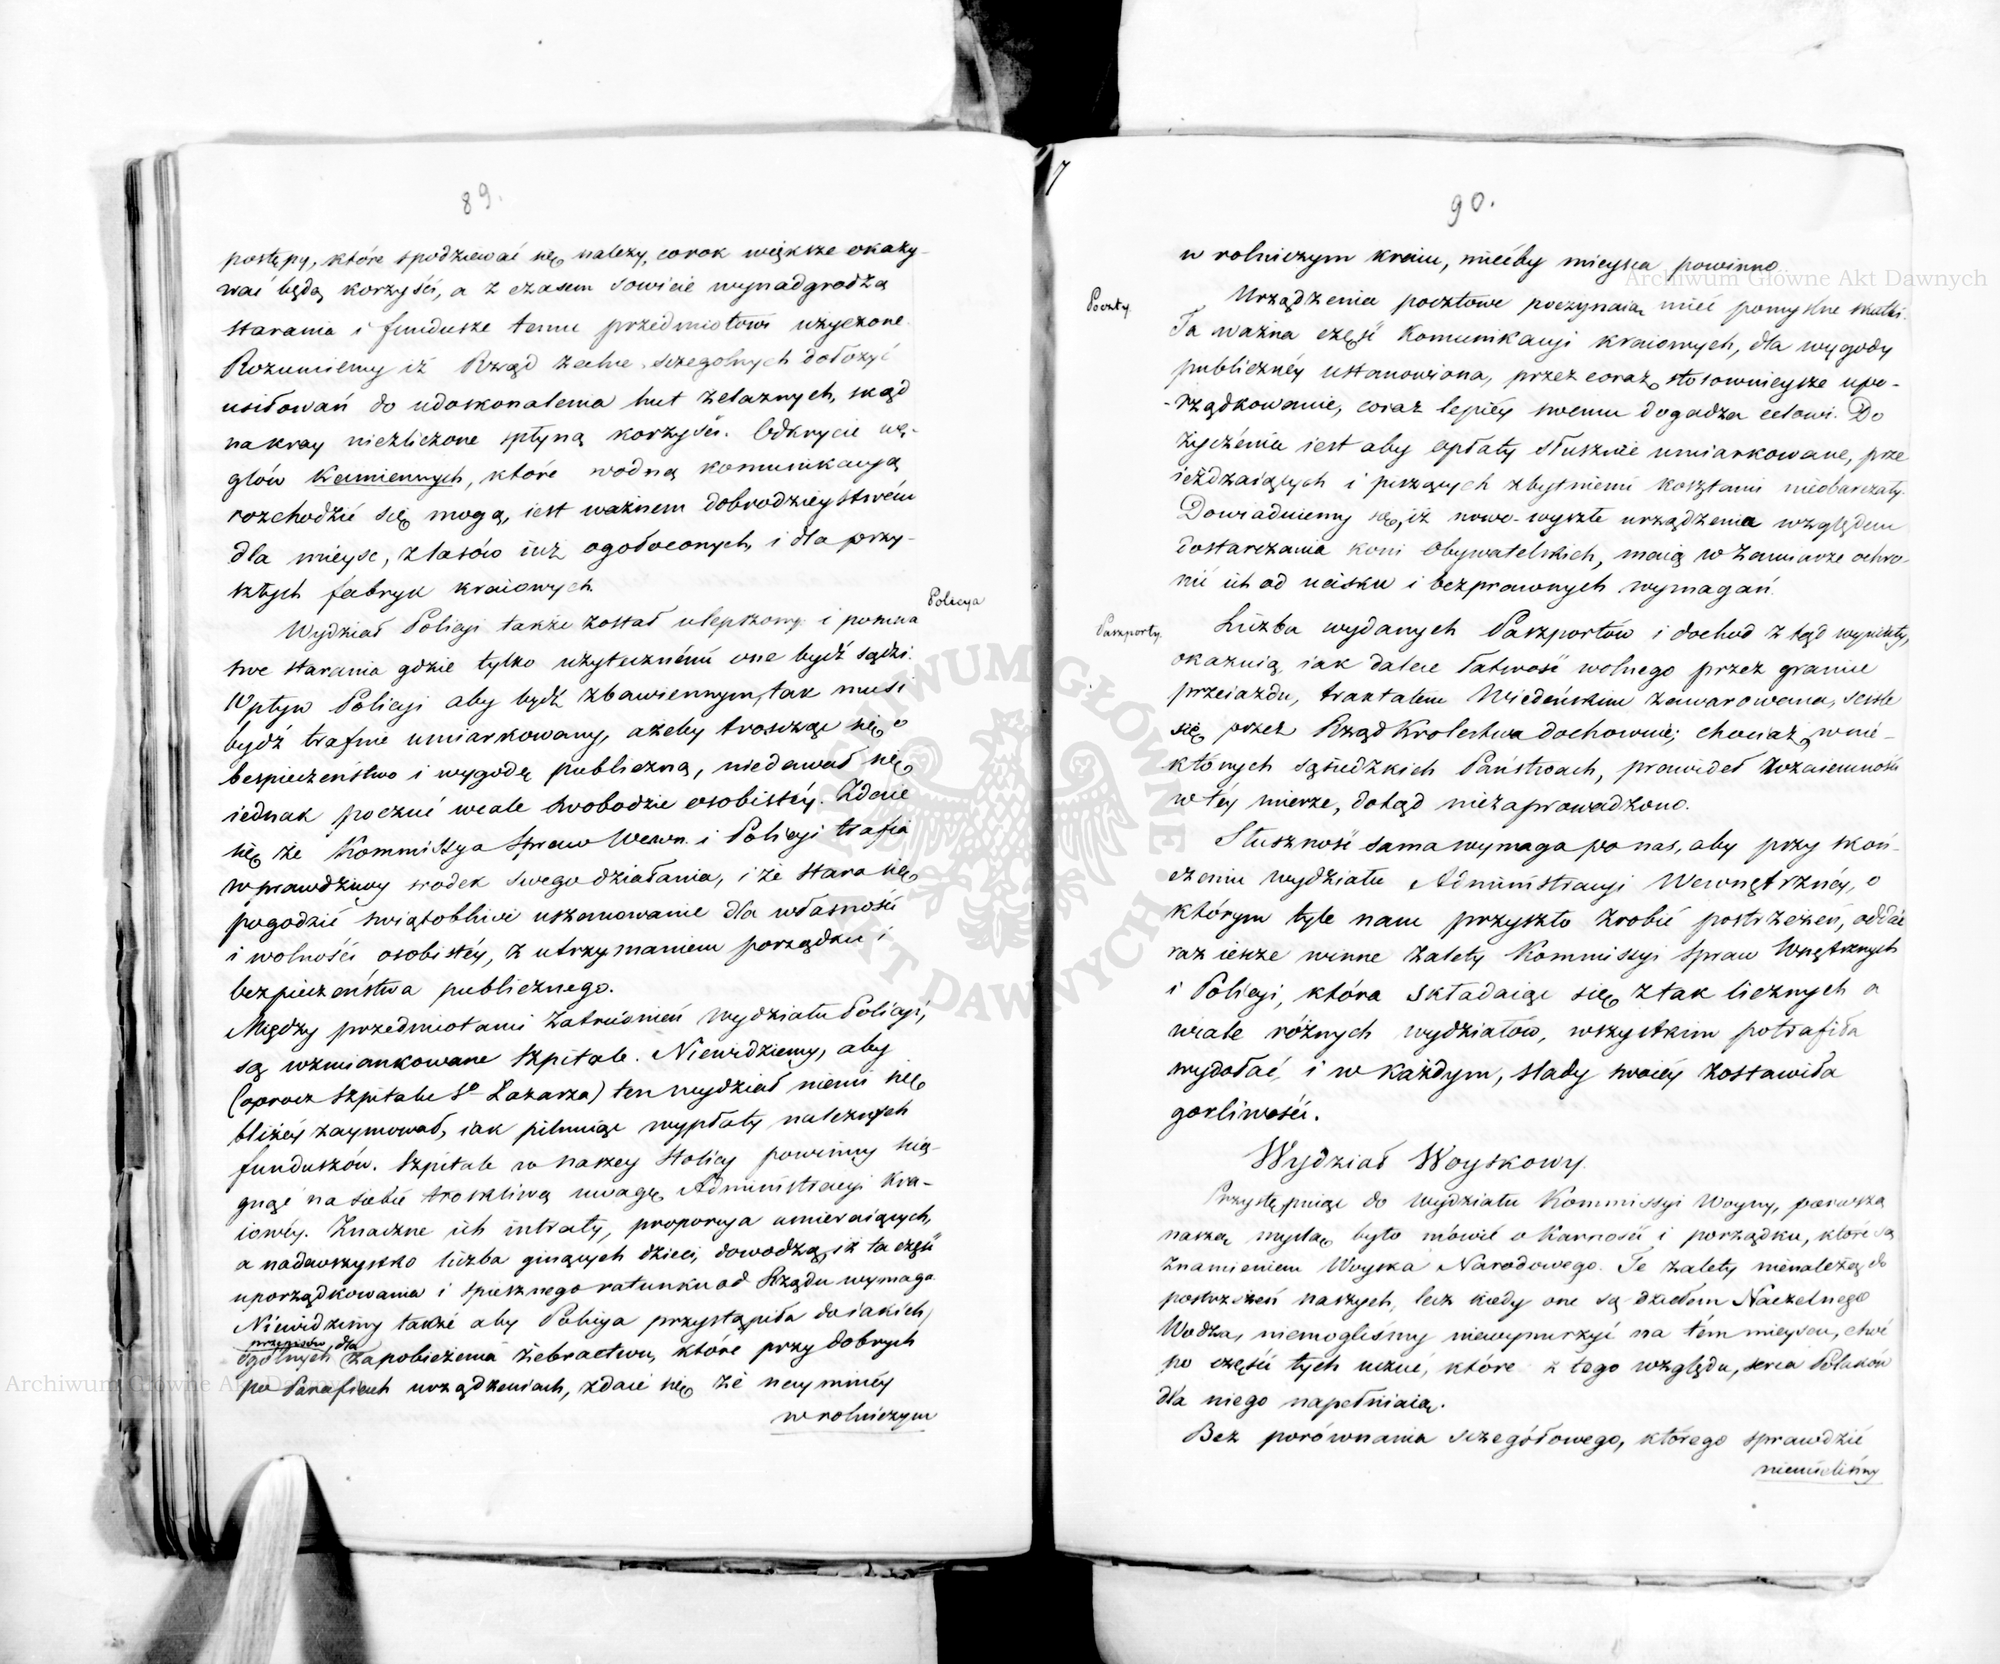 89.
postępy, które spodziewać się należy, corok większe okazy-
wać będą korzyści, a z czasem sowicie wynadgrodzą
starania i fundusze temu przedmiotowi użyczone.
Rozumiemy iż Rząd zechce szczegolnych dołożyć
usiłowań do udoskonalenia hut żelaznych, skąd
na kray niezliczone spłyną korzyści. Odkrycie wę-
glów Kamiennych, które wodną komunikacyą
rozchodzić się mogą, iest ważnem dobrodzieystwem
dla mieysc, z lasów iuż ogołoconych, i dla przy-
szłych fabryk kraiowych.
Policya
Wydział Policyi także został ulepszony i pomna
swe starania gdzie tylko użytecznémi one bydź sądzi.
Wpływ Policyi aby bydź zbawiennym, tak musi
bydź trafnie umiarkowany, ażeby troszcząc się o
bespieczeństwo i wygodę publiczną, niedawał się
iednak poczuć wcale swobodzie osobistéy. Zdaie
się że Kommissya Spraw Wewn. i Policyi trafia
w prawdziwy srodek swego działania, i że stara się
pogodzić swiątobliwe uszanowanie dla własności
i wolności osobistéy, z utrzymaniem porządku i
bezpieczeństwa publicznego.
Między przedmiotami zatrudnień Wydziału Policyi,
są wzmiankowane Szpitale. Niewidziemy, aby
(oprocz Szpitalu Sgo Łazarza) ten wydział niemi się
bliżéy zaymował, iak pilnuiąc wypłaty należnych
funduszów. Szpitale w naszey Stolicy powinny ścią-
gnąć na siebie troskliwą uwagę Administracyi Kra-
iowéy. Znaczne ich intraty, proporcya umieraiących,
a nadewszystko liczba ginących dzieci, dowodzą, iż ta część
uporządkowania i spiesznego ratunku od Rządu wymaga.
Niewidzimy także aby Policya przystąpiła do iakich,
przepisów, dla
ogólnych zapobieżenia żebractwu, które przy dobrych
po Parafiach urządzeniach, zdaie się że naymniéy
w rolniczym
90.
w rolniczym kraiu, miećby mieysca powinno
Poczty.
Urządzenia pocztowe poczynaią mieć pomyślne skutki.
Ta ważna część Komunikacyi kraiowych, dla wygody
publicznéy ustanowiona, przez coraz stosownieysze upo-
-rządkowanie, coraz lepiéy swemu dogadza celowi. Do
życzenia iest aby opłaty słusznie umiarkowane, prze
ieżdzaiących i piszących zbytniemi kosztami nieobarczały.
Dowiaduiemy się, iż nowo-wyszłe urządzenia względem
dostarczania koni Obywatelskich, maią w zamiarze ochro-
nić ich od ucisku i bezprawnych wymagań.
Paszporty.
Liczba wydanych Paszportów i dochod z tąd wynikły,
okazuią, iak dalece łatwość wolnego przez granice
przeiazdu, traktatem Wiedeńskim zawarowana, scisle
się przez Rząd Krolestwa dochowuie; chociaż, w nie-
których sąsiedzkich Państwach, prawideł wzaiemności
w téy mierze, dotąd niezaprowadzono.
Słuszność sama wymaga po nas, aby przy skoń-
czeniu wydziału Administracyi Wewnętrznéy, o
którym tyle nam przyszło zrobić postrzeżeń, oddać
raz iescze winne zalety Kommissyi Spraw Wnętrznych
i Policyi, która składaiąc się z tak licznych a
wcale różnych wydziałów, wszystkim potrafiła
wydołać, i w każdym, slady swoiéy zostawiła
gorliwości.
Wydział Woyskowy.
Przystępuiąc do wydziału Kommissyi Woyny, pierwszą
naszą myslą było mówić o Karności i porządku, które są
znamieniem Woyska Narodowego. Te zalety nienależą do
postrzeżeń naszych, lecz kiedy one są dziełem Naczelnego
Wodza, niemogliśmy niewynurzyć na tém mieyscu, choć
po części tych uczuć, które z tego względu, serca Polaków
dla niego napełniaią.
Bez porównania szczegółowego, którego sprawdzić
nieumieliśmy